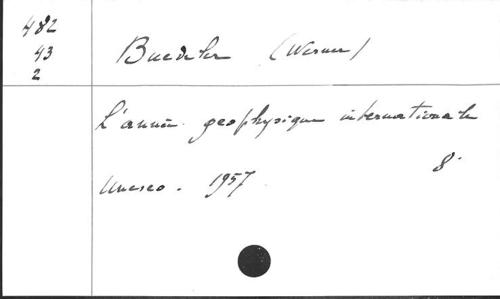 482
43
2
Buedeler (Werner)
L'année géophysique internationale
8°
Unesco. 1957.